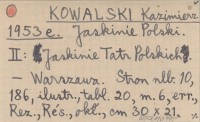 KOWALSKI Kazimierz
1953 e. Jaskinie Polski.
II: Jaskinie Tatr Polskich.
- Warszawa. Stron nlb. 10,
186, ilustr., tabl. 20, m. 6, err.,
Rez., Rés., okł., cm 30 x 21.